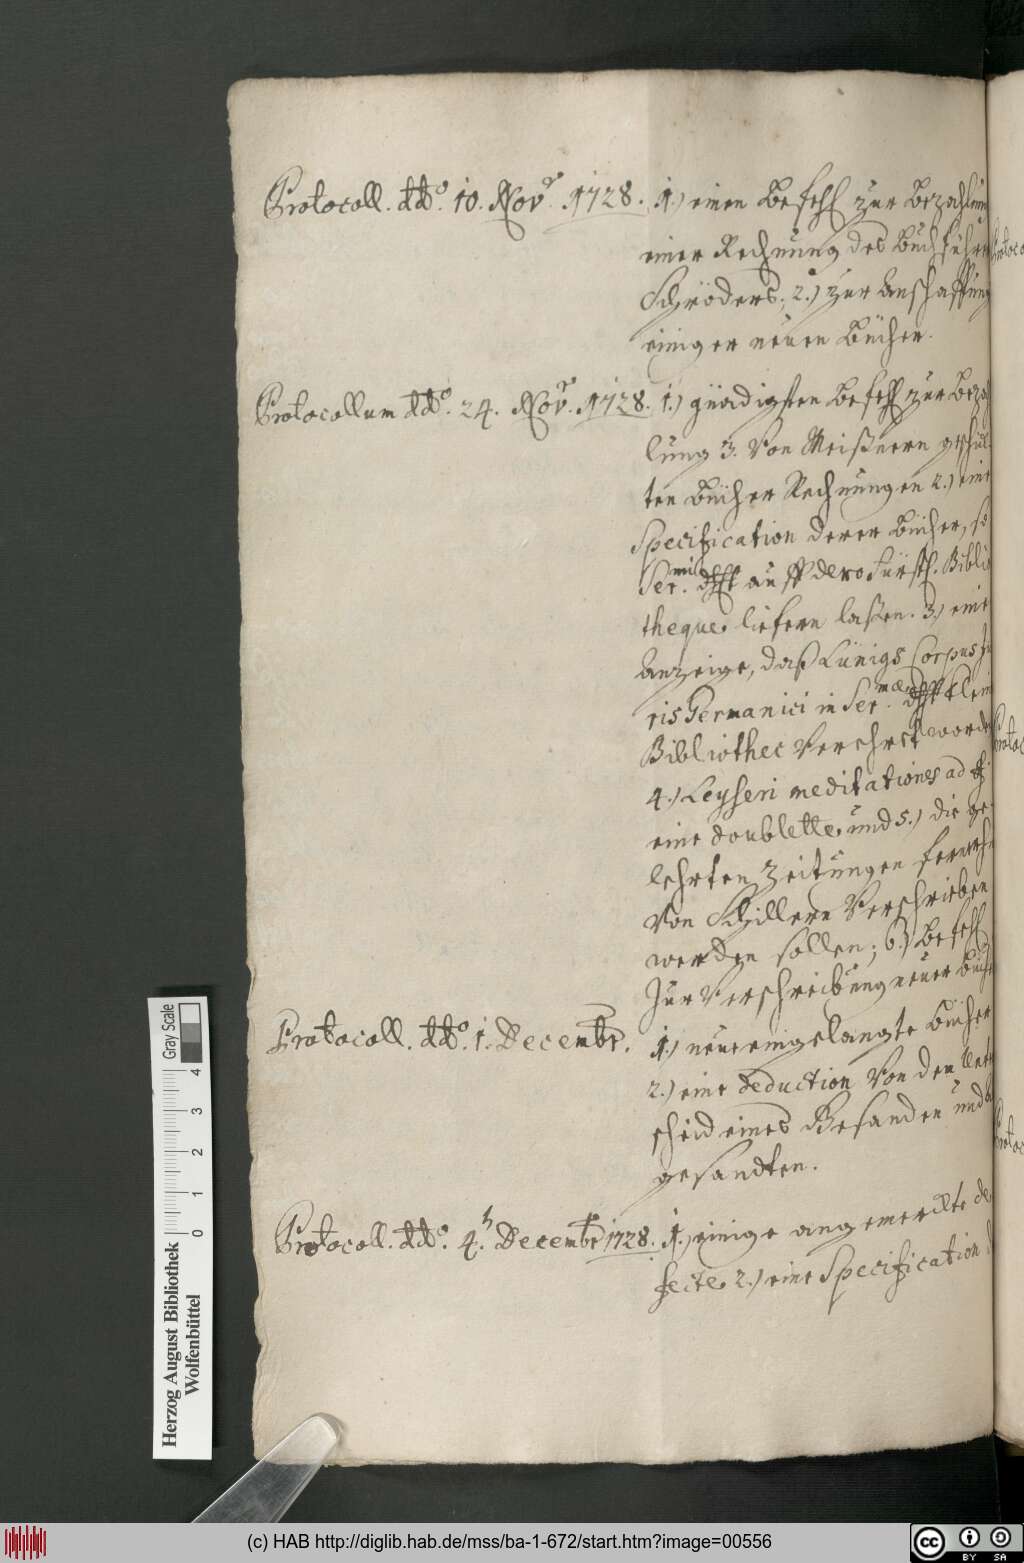 Protocoll. ddo. 10. Novr. 1728. 1.) einen Befehl zur Bezahlung
einer Rechnung des Buchführer
Schröders; 2.) zur Anschaffung
einiger neuen Bücher.
Protocollum ddo. 24. Novr. 1728. 1.) gnädigsten Befehl zur Bezah
lung 3. Von Meißnern
ten Bücher Rechnungen 2.) eine
Specification derer Bücher, so
Ser.mi auff dero Fürstl. Biblio
theque liefern laßen. 3.) eine
Anzeige, daß Lünigs Corpus Ju
ris Germanici in Ser.mae
Bibliothec Verehrt worde
4.) Leyseri meditationes ad
eine doublette und 5.) die ge-
lehrten Zeitungen
Von Schillern Verschrieben
werden sollen; 6.) Befehl
Zur Verschreibung neuer Büch
Protocoll. ddo. 1. Decembr. 1.) neu eingelangte Bücher
2.) eine Deduction Von dem Unter
scheid eines Gesanden und
gesandten.
Protocoll. ddo. 4. Decembr 1728. 1.) einige angemerckte de
fecte 2.) eine Specification
Protoco
Protoc
Protoc
Herzog August Bibliothek
Wolfenbüttel
0 1 2 3 4
Gray Scale
(c) HAB http://diglib.hab.de/mss/ba-1-672/start.htm?image=00556
cc BY SA